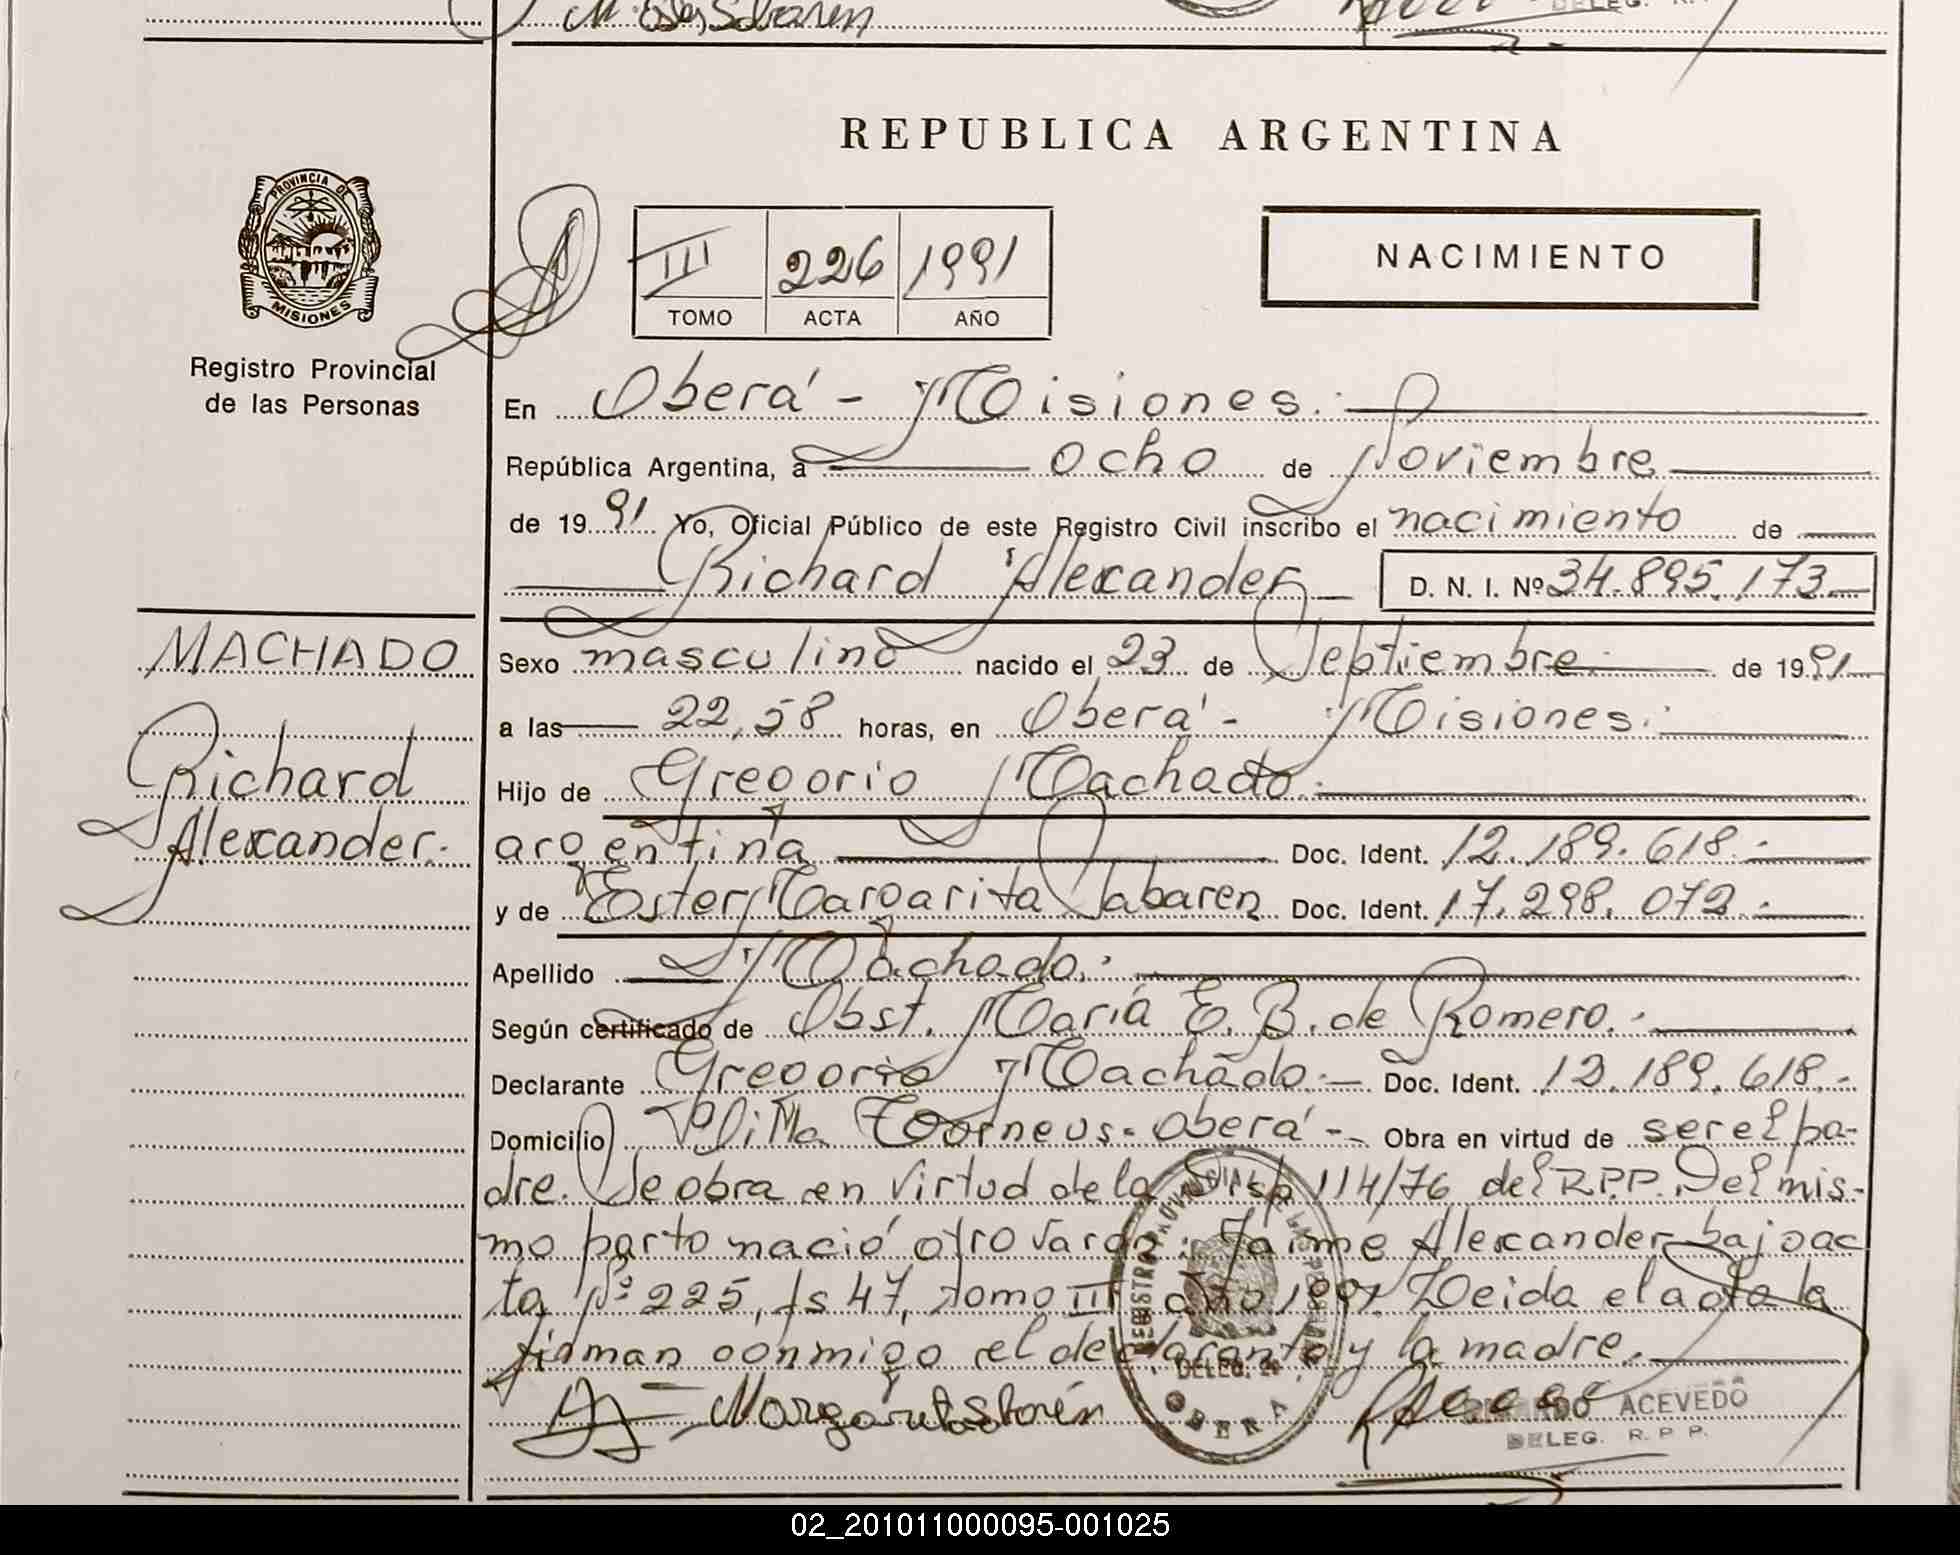 REPUBLICA ARGENTINA
PROVINCIA DE
MISIONES
Registro Provincial
de las Personas
III 226 1991
TOMO ACTA AÑO
NACIMIENTO
En Oberá - Misiones.
República Argentina, a ocho de Noviembre
de 1991 Yo, Oficial Público de este Registro Civil inscribo el nacimiento de
Richard Alexander D. N. I. Nº 34.895.173
MACHADO
Richard
Alexander.
Sexo masculino nacido el 23 de Septiembre de 1991
a las 22,58 horas, en Oberá - Misiones.
Hijo de Gregorio Machado.
argentina Doc. Ident. 12.189.618.-
y de Ester Margarita Sabaren Doc. Ident. 17.298.072.-
Apellido Machado.
Según certificado de Obst. María E. B. de Romero.-
Declarante Gregorio Machado.- Doc. Ident. 12.189.618.-
Domicilio Villa Torneus - Oberá - Obra en virtud de ser el pa-
dre. Se obra en virtud de la Disp 114/76 del R.P.P. Del mis-
mo parto nació otro varón: Jaime Alexander bajo ac
ta Nº 225, fs 47, tomo III año 1991 Leida el acta la
firman conmigo el declarante y la madre.
ACEVEDO
DELEG. R. P. P.
OBERA
02_201011000095-001025